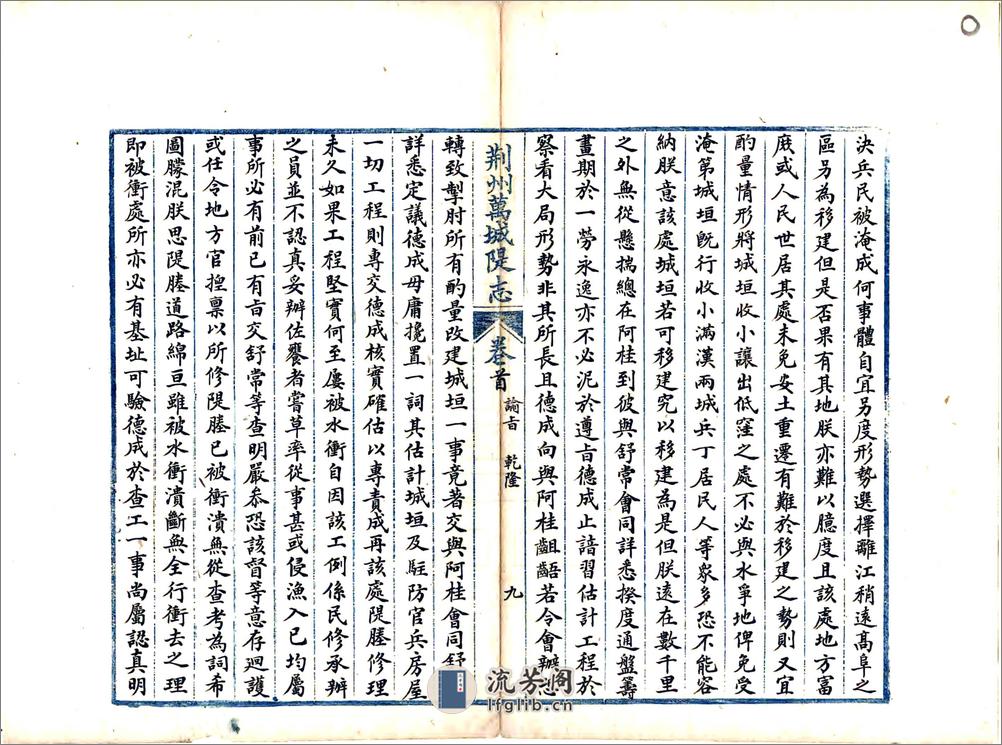 決兵民被淹成何事體自宜另度形勢選擇離江稍遠高阜之
區另為移建但是否果有其地朕亦難以臆度且該處地方富
庶或人民世居其處未免安土重遷有難於移建之勢則又宜
酌量情形將城垣收小讓出低窪之處不必與水爭地俾免受
淹第城垣既行收小滿漢兩城兵丁居民人等眾多恐不能容
納朕意該處城垣若可移建究以移建為是但朕遠在數千里
之外無從懸揣總在阿桂到彼與舒常會同詳悉揆度通盤籌
畫期於一勞永逸亦不必泥於遵旨德成止諳習估計工程於
察看大局形勢非其所長且德成向與阿桂齟齬若令會辦恐
荊州萬城隄志 卷首 諭旨 乾隆 九
轉致掣肘所有酌量改建城垣一事竟著交與阿桂會同舒
詳悉定議德成毋庸攙置一詞其估計城垣及駐防官兵房屋
一切工程則專交德成核實確估以專責成再該處隄塍修理
未久如果工程堅實何至屢被水衝自因該工例係民修承辦
之員並不認真妥辦佐饔者嘗草率從事甚或侵漁入已均屬
事所必有前已有旨交舒常等查明嚴叅恐該督等意存迴護
或任令地方官捏稟以所修隄塍已被衝潰無從查考為詞希
圖朦混朕思隄塍道路綿亘雖被水衝潰斷無全行衝去之理
即被衝處所亦必有基址可驗德成於查工一事尚屬認真明
流芳閣
lfglib.cn